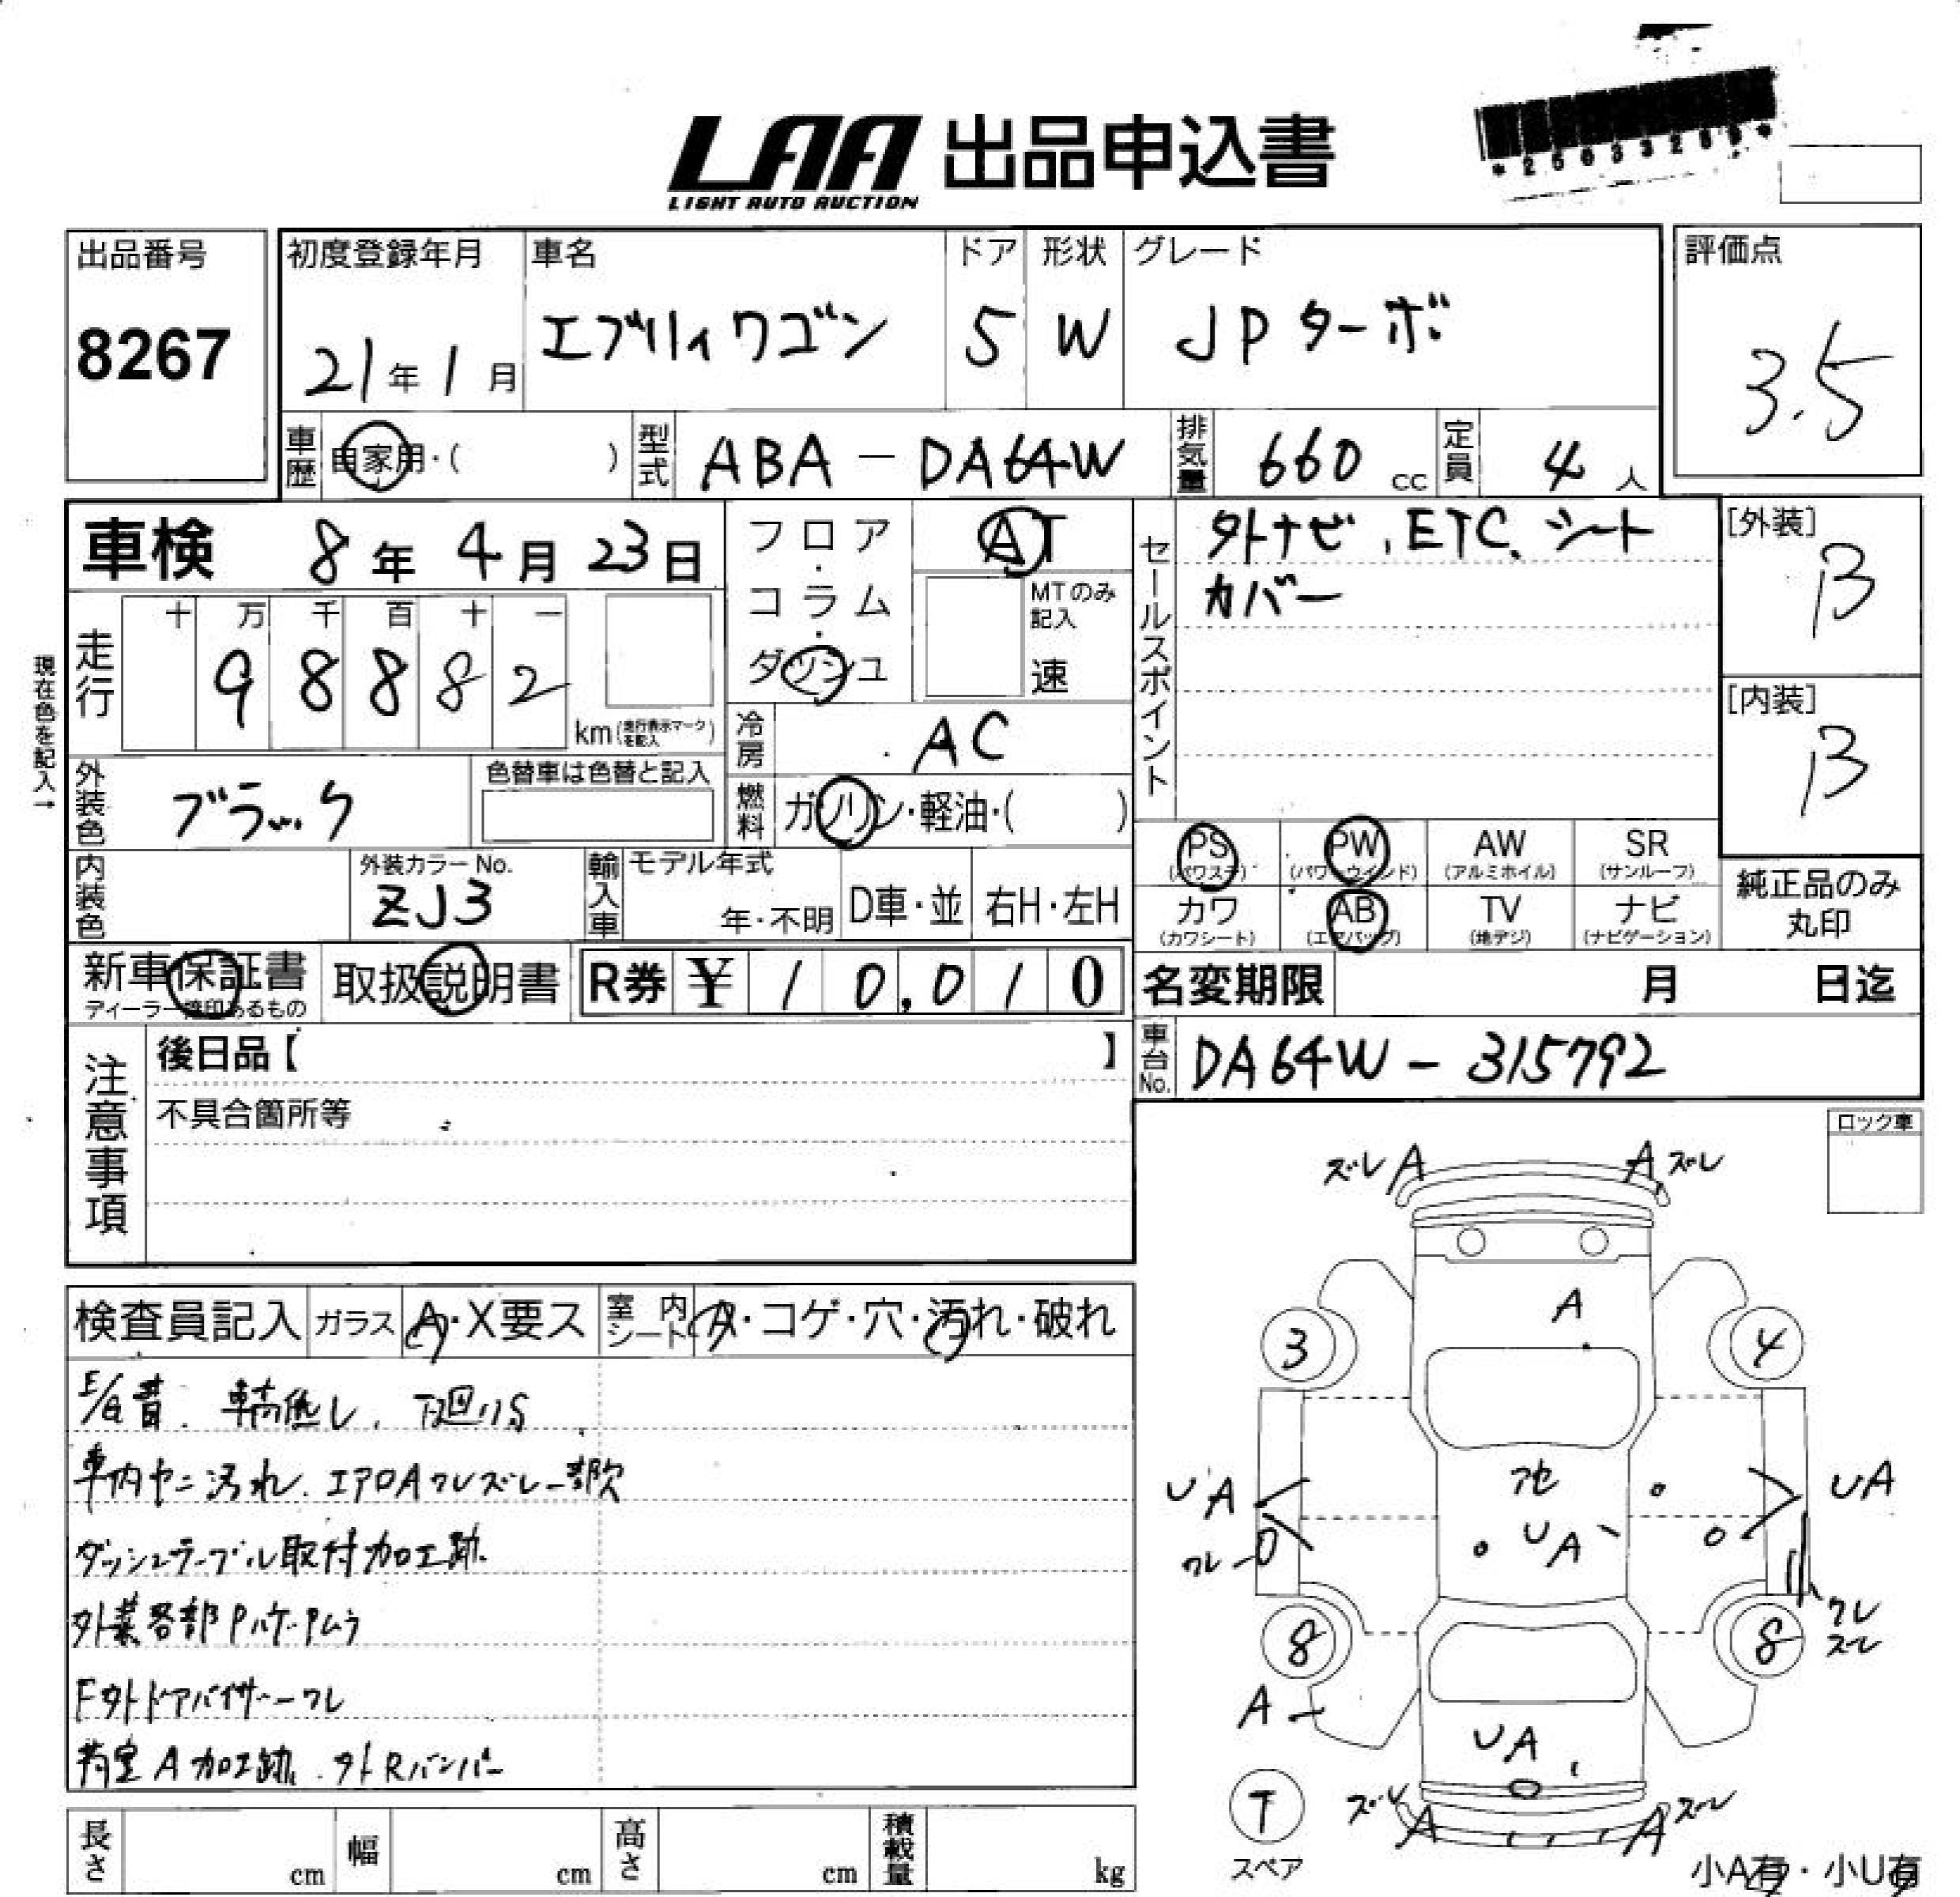 LAA 出品申込書
LIGHT AUTO AUCTION
出品番号
8267
初度登録年月
21年1月
車名
エブリィワゴン
ドア
5
形状
W
グレード
JPターボ
評価点
3.5
車歴
自家用・( )
型式
ABA-DA64W
排気量
660 cc
定員
4人
車検 8年4月23日
現在色を記入→
走行
十 万 千 百 十 一
9 8 8 8 2
km(走行表示マークを記入)
フロア・コラム・ダッシュ
AT
MTのみ記入
速
冷房
AC
セールスポイント
外ナビ、ETC、シート
カバー
[外装]
B
[内装]
B
外装色
ブラック
色替車は色替と記入
燃料
ガソリン・軽油・( )
内装色
外装カラーNo.
ZJ3
輸入車
モデル年式
年・不明
D車・並
右H・左H
PS
(パワステ)
PW
(パワーウインド)
AW
(アルミホイル)
SR
(サンルーフ)
カワ
(カワシート)
AB
(エアバッグ)
TV
(地デジ)
ナビ
(ナビゲーション)
純正品のみ
丸印
新車保証書
取扱説明書
R券 ¥ 10,010
名変期限 月 日迄
車台No.
DA64W-315792
注意事項
後日品【 】
不具合箇所等
ロック車
検査員記入
ガラス
A・X要ス
室内シート
A・コゲ・穴・汚れ・破れ
E/G音、輪無し、下廻りS
車内ヤニ汚れ、エアロAワレズレ一部欠
ダッシュテーブル取付加工跡
外装各部Pハゲ・Pムラ
F外ドアバイザーワレ
荷室A加工跡、外Rバンパー
ズレ A
A ズレ
A
3
4
アセ
UA
UA
UA
ワレ
ワレ
ズレ
8
8
A
UA
T
スペア
ズレ A
A ズレ
小A有・小U有
長さ cm
幅 cm
高さ cm
積載量 kg